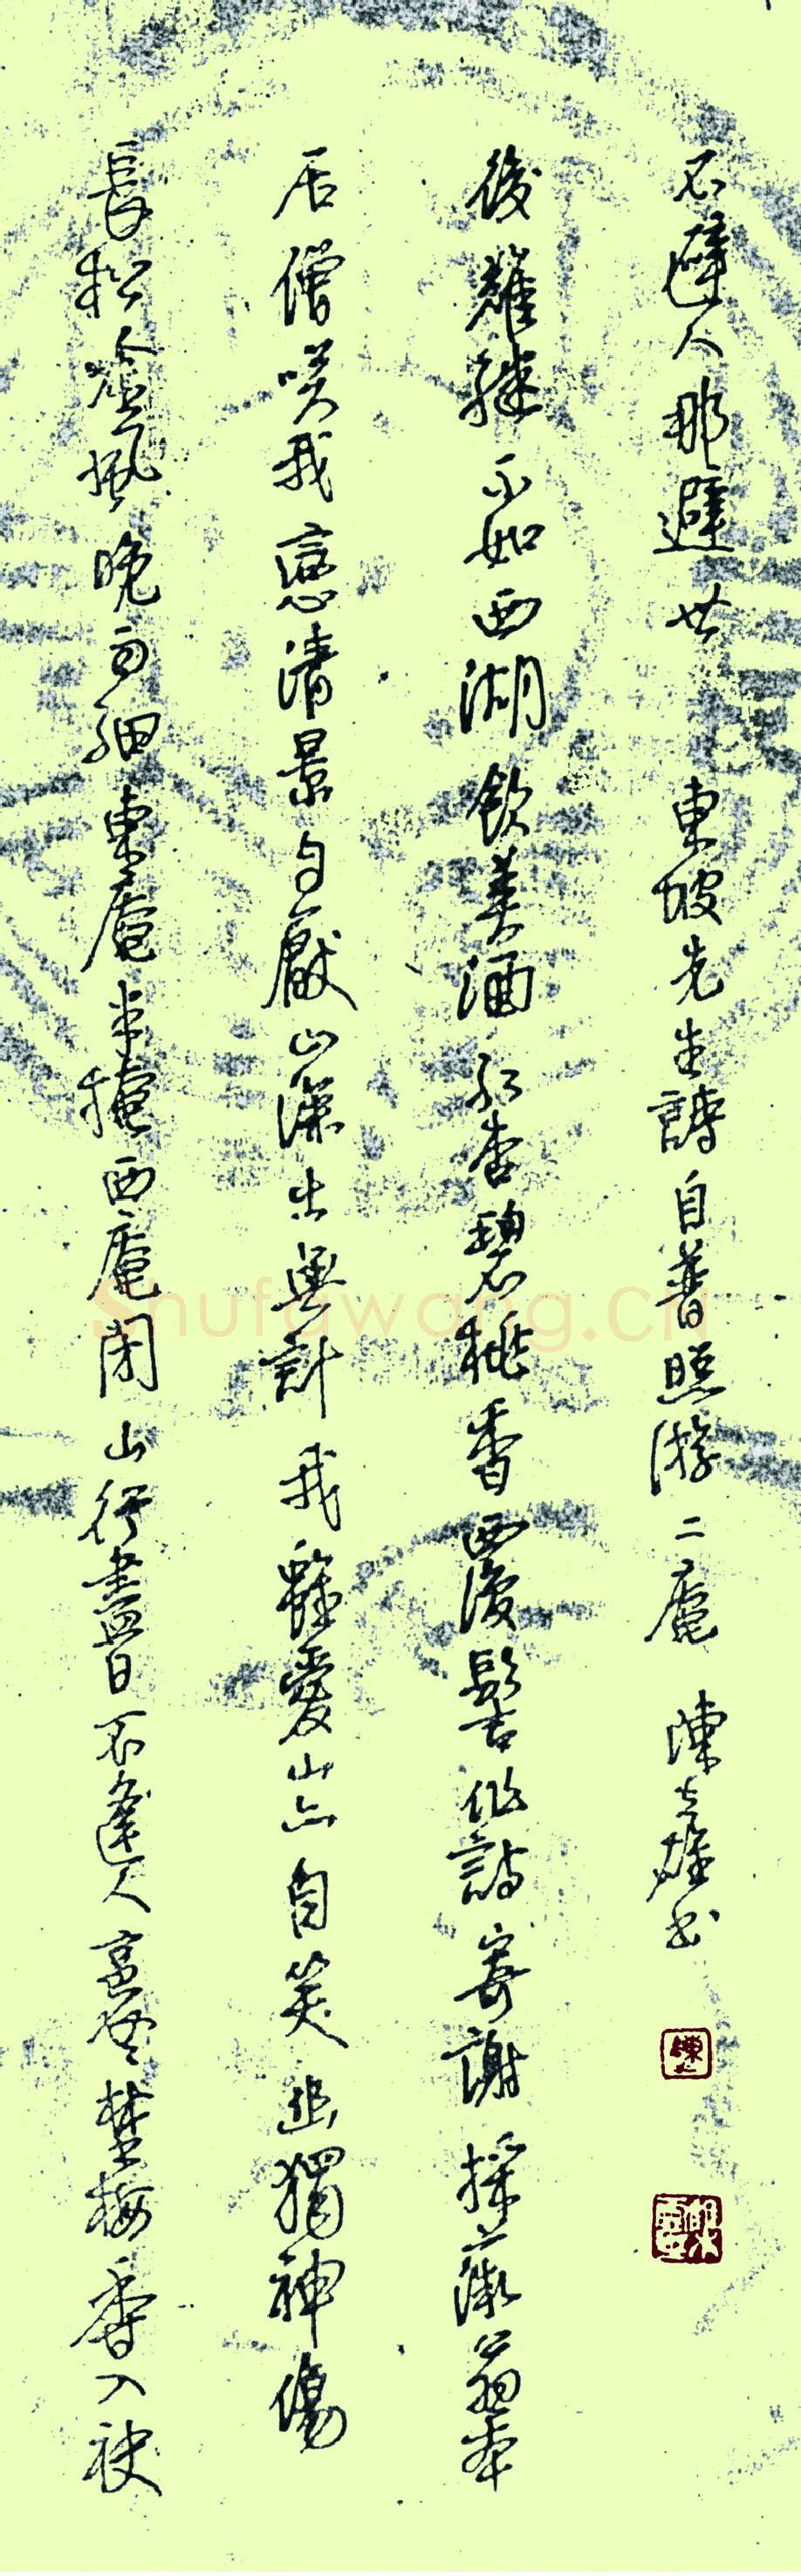 長松吟風晚雨細東庵半掩西庵閉山行盡日不逢人裛裛埜梅香入袂
居僧咲我戀清景自厭山深出無計我雖愛山亦自笑幽獨神傷
後難繼不如西湖飲美酒紅杏碧桃香覆髻作詩寄謝採薇翁本
不避人那避世 東坡先生詩自普照游二庵 陳雄书
Shufawang.cn